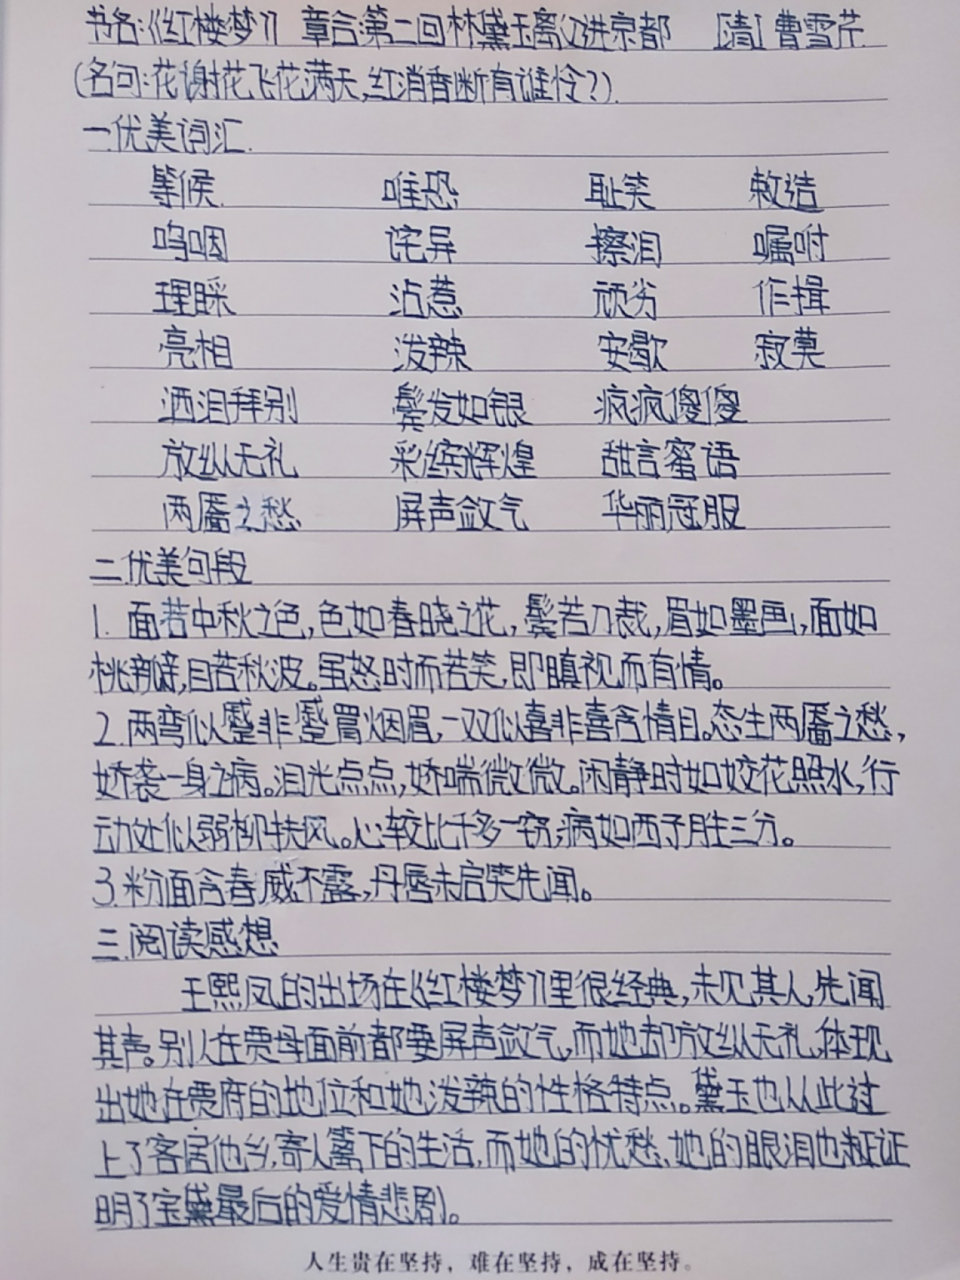 书名:《红楼梦》 章台:第二回林黛玉离父进京都 [清]曹雪芹
(名句:花谢花飞花满天,红消香断有谁怜?)
一.优美词汇
等候 唯恐 耻笑 敕造
呜咽 诧异 擦泪 嘱咐
理睬 沾惹 顽劣 作揖
亮相 泼辣 安歇 寂莫
洒泪拜别 鬓发如银 疯疯傻傻
放纵无礼 彩绣辉煌 甜言蜜语
两靥之愁 屏声敛气 华丽冠服
二.优美句段
1. 面若中秋之色,色如春晓之花,鬓若刀裁,眉如墨画,面如
桃瓣,目若秋波。虽怒时而若笑,即瞋视而有情。
2.两弯似蹙非蹙罥烟眉,一双似喜非喜含情目。态生两靥之愁,
娇袭一身之病。泪光点点,娇喘微微。闲静时如姣花照水,行
动处似弱柳扶风。心较比干多一窍,病如西子胜三分。
3.粉面含春威不露,丹唇未启笑先闻。
三.阅读感想
王熙凤的出场在《红楼梦》里很经典,未见其人,先闻
其声。别人在贾母面前都要屏声敛气,而她却放纵无礼,体现
出她在贾府的地位和她泼辣的性格特点。黛玉也从此过
上了客居他乡,寄人篱下的生活,而她的忧愁、她的眼泪也
证明了宝黛最后的爱情悲剧。
人生贵在坚持，难在坚持，成在坚持。